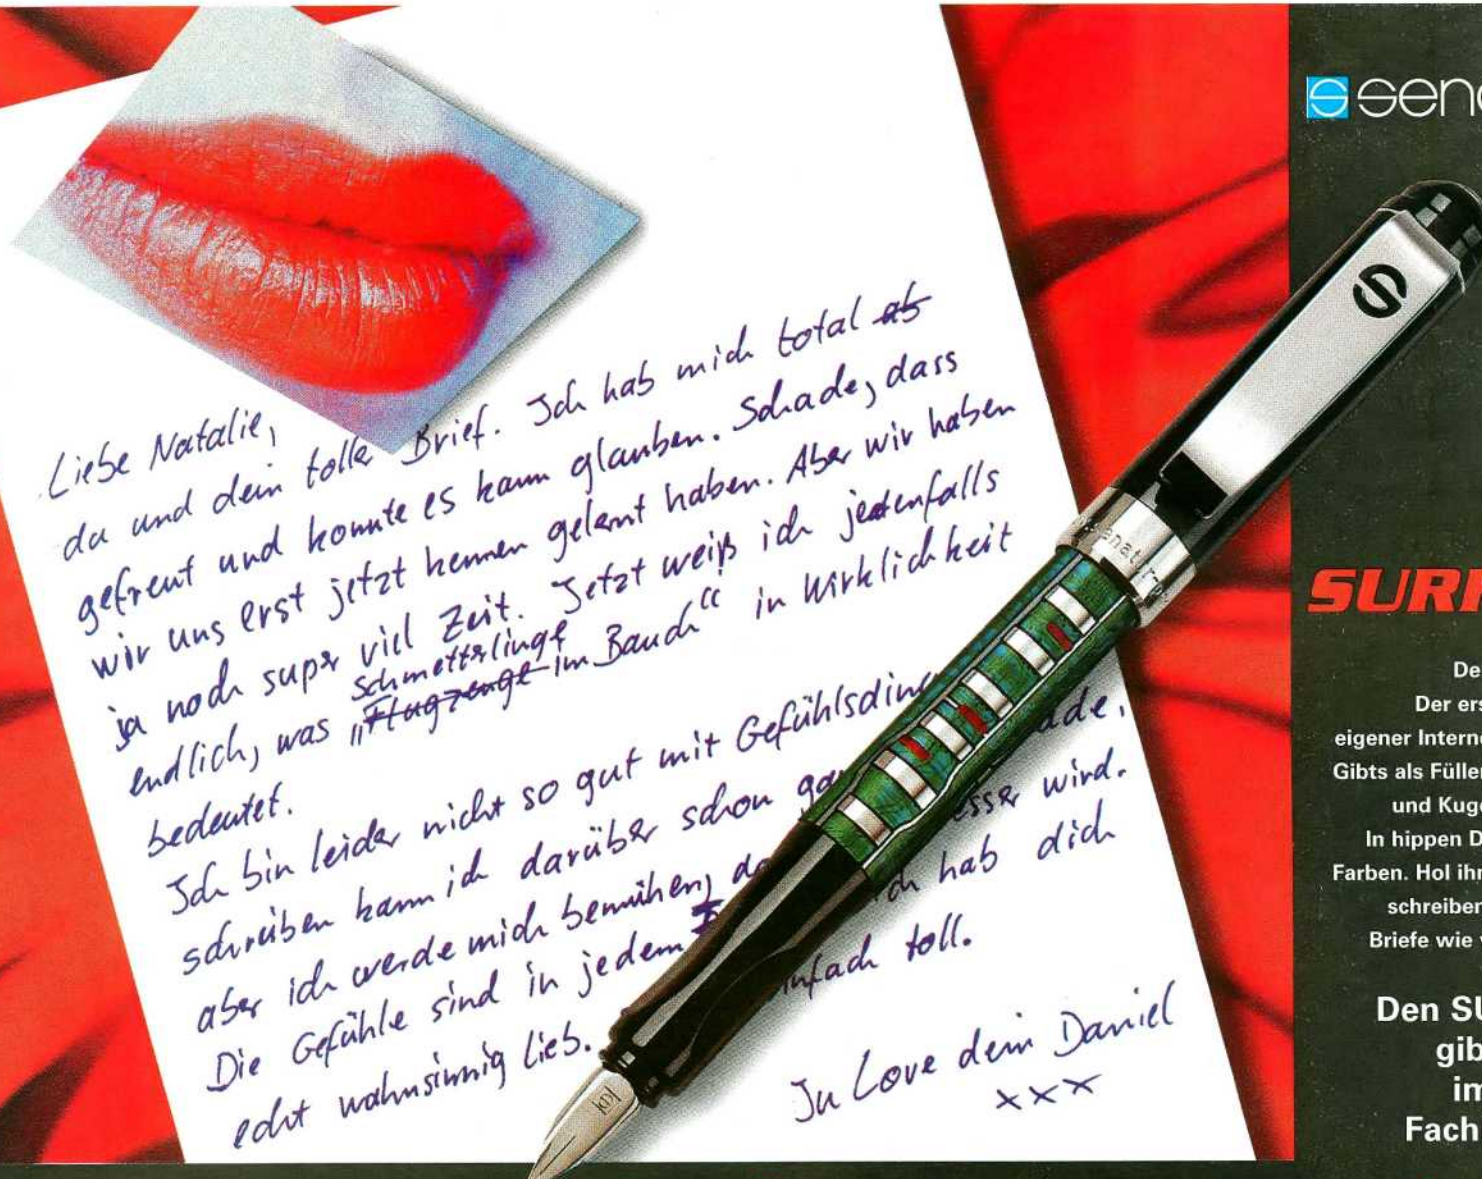 Liebe Natalie,
du und dein toller Brief. Ich hab mich total ab
gefreut und konnte es kaum glauben. Schade, dass
wir uns erst jetzt kennen gelernt haben. Aber wir haben
ja noch super viel Zeit. Jetzt weiß ich jedenfalls
endlich, was „Flugzeuge Schmetterlinge im Bauch“ in Wirklichkeit
bedeutet.
Ich bin leider nicht so gut mit Gefühlsdin
schreiben kann ich darüber schon ga ade,
aber ich werde mich bemühen, da esser wird.
Die Gefühle sind in jedem ch hab dich
echt wahnsinnig lieb. infach toll.
In Love dein Daniel
xxx
senatur
S
sena
SUR
De
Der ers
eigener Interne
Gibts als Füller
und Kuge
In hippen D
Farben. Hol ihn
schreiben
Briefe wie v
Den SU
gib
im
Fach